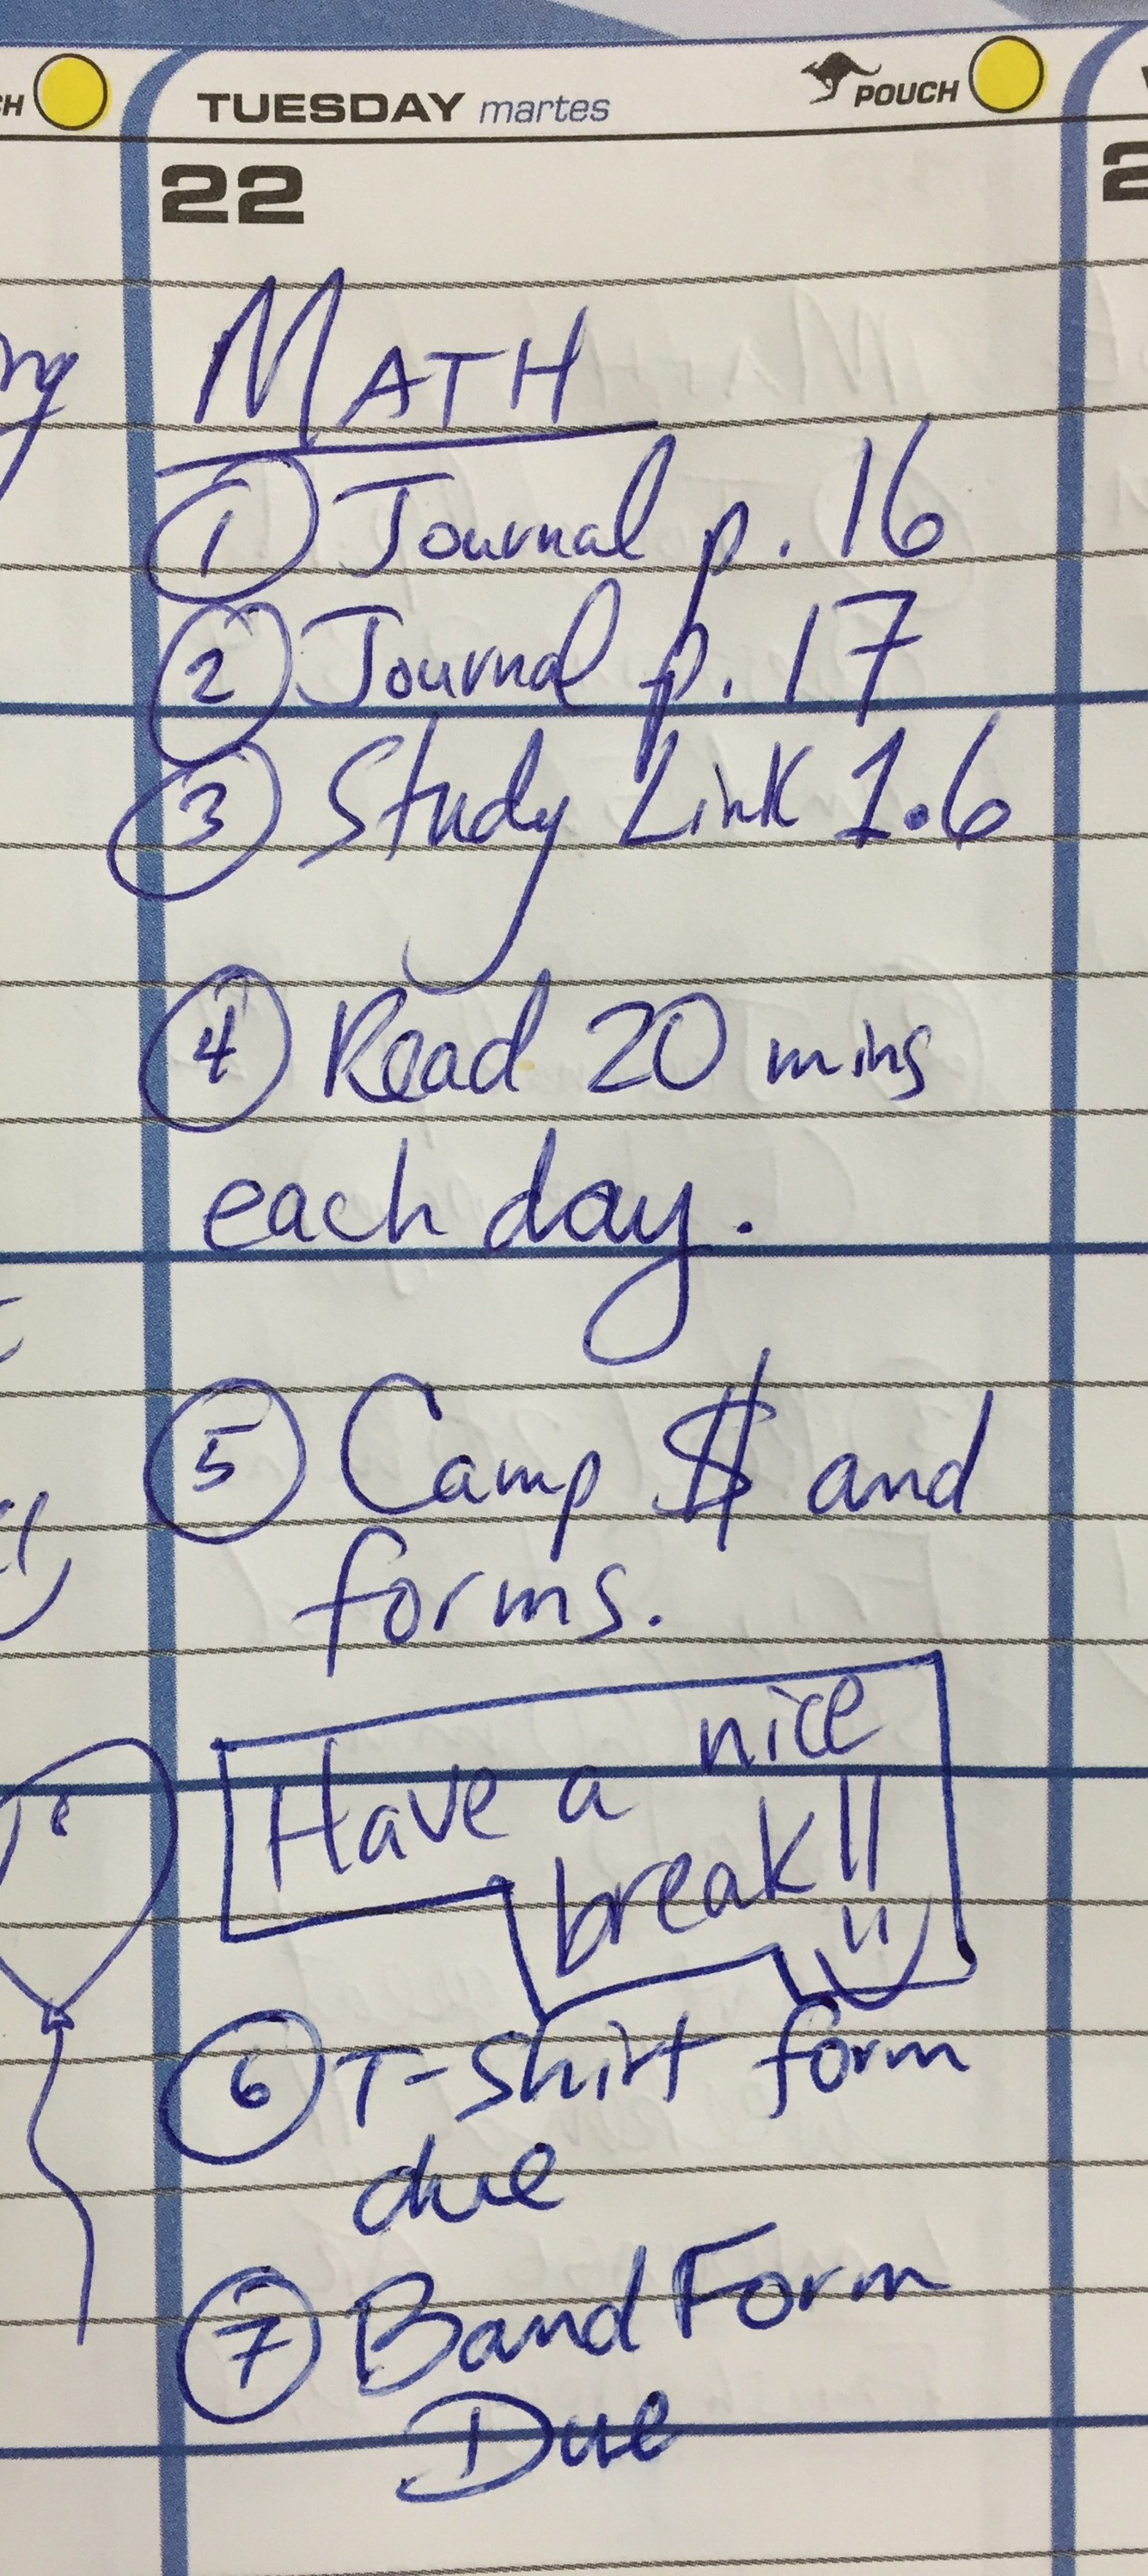 TUESDAY martes POUCH
22
MATH
1 Journal p. 16
2 Journal p. 17
3 Study Link 1.6
4 Read 20 mins
each day.
5 Camp $ and
forms.
Have a nice
break!!
6 T-Shirt form
due
7 Band Form
Due